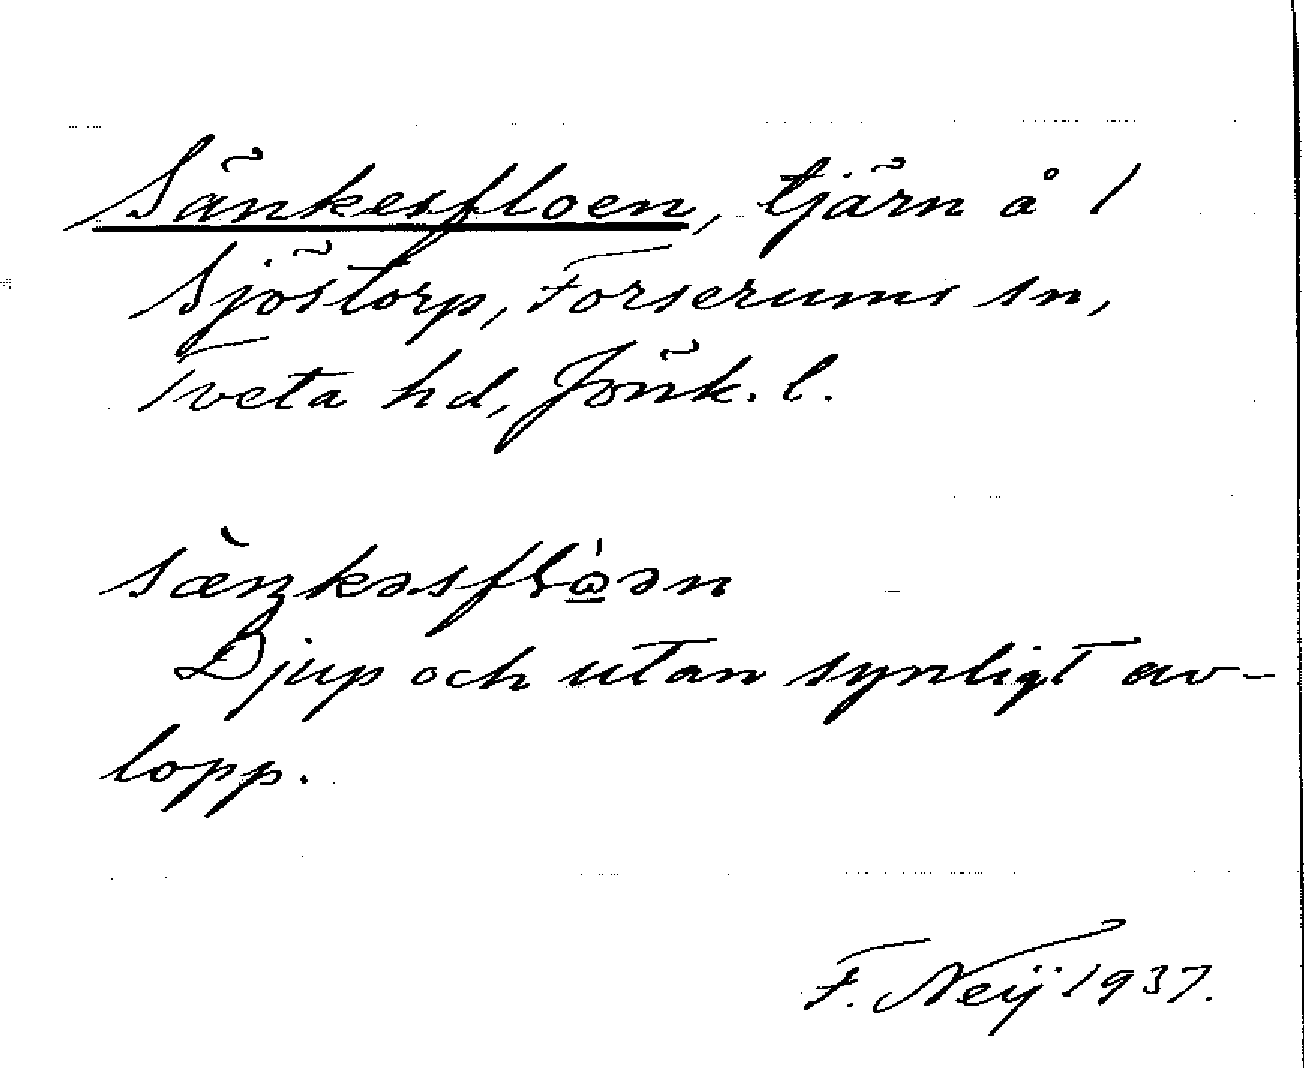 Sänkesfloen, tjärn å 1
Sjöstorp, Forserums sn,
Tveta hd, Jönk. l.
sæ̀ŋkəsflo̲̍ən
Djup och utan synligt av-
lopp.
F. Neij 1937.